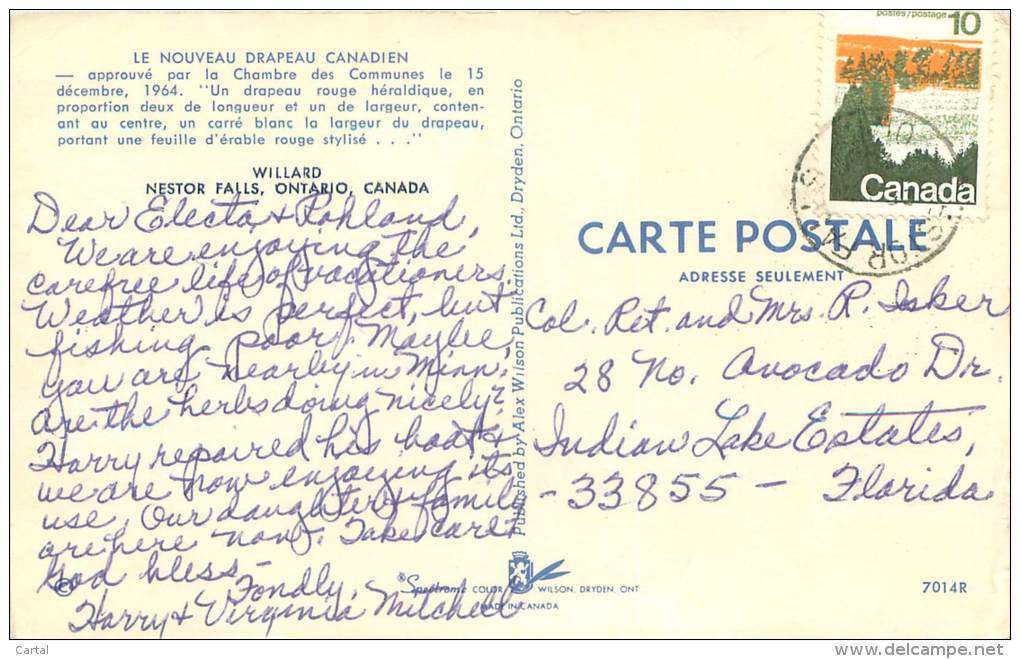 LE NOUVEAU DRAPEAU CANADIEN
— approuvé par la Chambre des Communes le 15
décembre, 1964. "Un drapeau rouge héraldique, en
proportion deux de longueur et un de largeur, conten-
ant au centre, un carré blanc la largeur du drapeau,
portant une feuille d'érable rouge stylisé . . ."
WILLARD
NESTOR FALLS, ONTARIO, CANADA
Dear Electa & Rohland,
We are enjoying the
carefree life of vacationers.
Weather is perfect, but
fishing poor. Maybe
you are nearby in Minn.
Are the herbs doing nicely?
Harry repaired his boat &
we are now enjoying its
use. Our daughter & family
are here now. Take care.
God bless –
Fondly,
Harry & Virginia Mitchell
Published by Alex Wilson Publications Ltd., Dryden, Ontario
postes/postage 10
Canada
CARTE POSTALE
ADRESSE SEULEMENT
Col. Ret. and Mrs. R. Isker
28 No. Avocado Dr.
Indian Lake Estates,
– 33855 – Florida
©
®Spectrome COLOR WILSON, DRYDEN, ONT
MADE IN CANADA
7014R
Cartal
delcampe.net